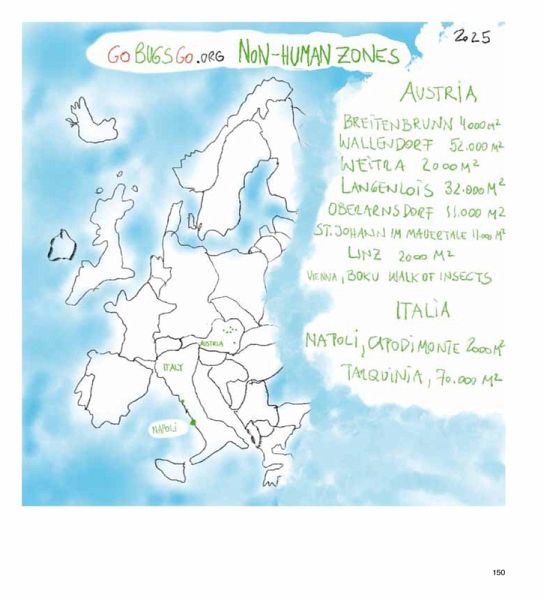 GO BUGS GO.ORG NON-HUMAN ZONES
2025
AUSTRIA
BREITENBRUNN 4000 M²
WALLENDORF 52.000 M²
WEITRA 2000 M²
LANGENLOIS 32.000 M²
OBERARNSDORF 11.000 M²
ST. JOHANN IM MAUERTALE 1100 M²
LINZ 2000 M²
VIENNA, BOKU WALK OF INSECTS
ITALIA
NAPOLI, CAPODIMONTE 2000 M²
TARQUINIA, 70.000 M²
AUSTRIA
ITALY
NAPOLI
150